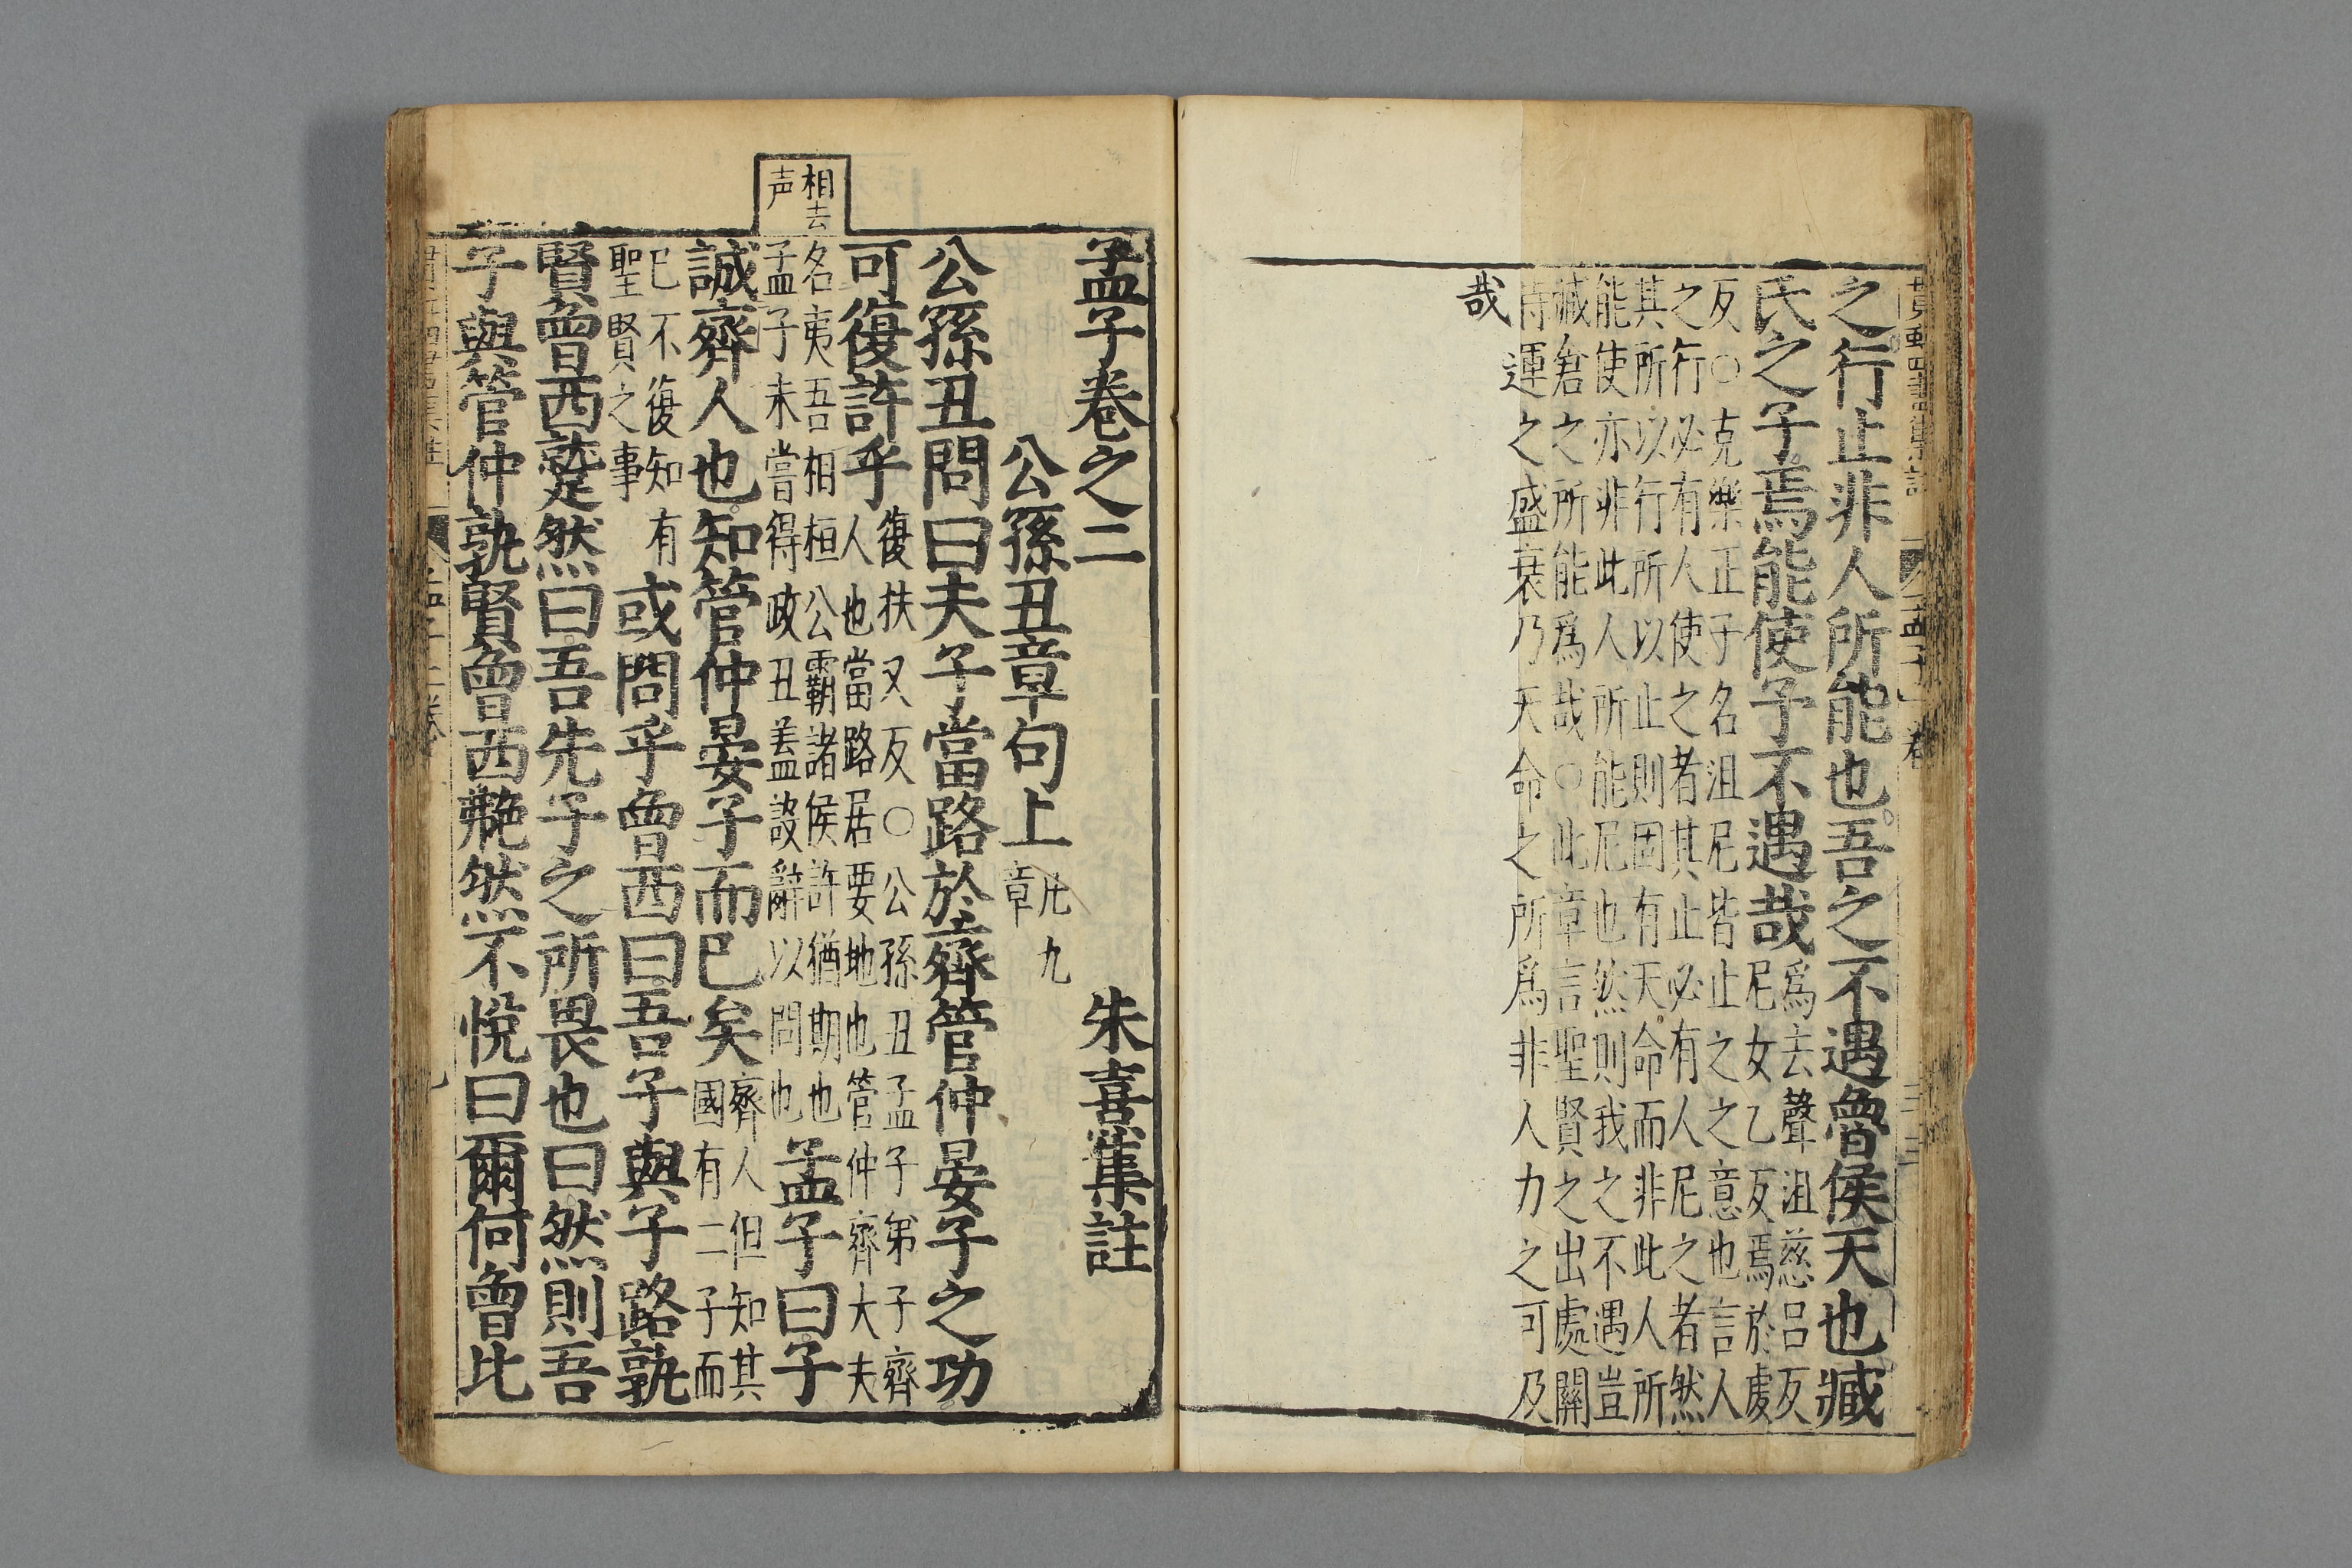 之行止非人所能也吾之不遇魯侯天也臧
氏之子焉能使予不遇哉
爲去聲沮慈呂反
尼女乙反焉於處
反○克樂正子名沮尼皆止之之意也言人
之行必有人使之者其止必有人尼之者然
其所以行所以止則固有天命而非此人所
能使亦非此人所能尼也然則我之不遇豈
臧倉之所能爲哉○此章言聖賢之出處關
時運之盛衰乃天命之所爲非人力之可及
哉
孟子卷之二
朱熹集註
公孫丑章句上
凡九
章
公孫丑問曰夫子當路於齊管仲晏子之功
可復許乎
復扶又反○公孫丑孟子弟子齊
人也當路居要地也管仲齊大夫
相去
声
名夷吾相桓公霸諸侯許猶期也
孟子未嘗得政丑盖設辭以問也
孟子曰子
誠齊人也知管仲晏子而已矣
齊人但知其
國有二子而
已不復知有
聖賢之事
或問乎曾西曰吾子與子路孰
賢曾西蹵然曰吾先子之所畏也曰然則吾
子與管仲孰賢曾西艴然不悅曰爾何曾比